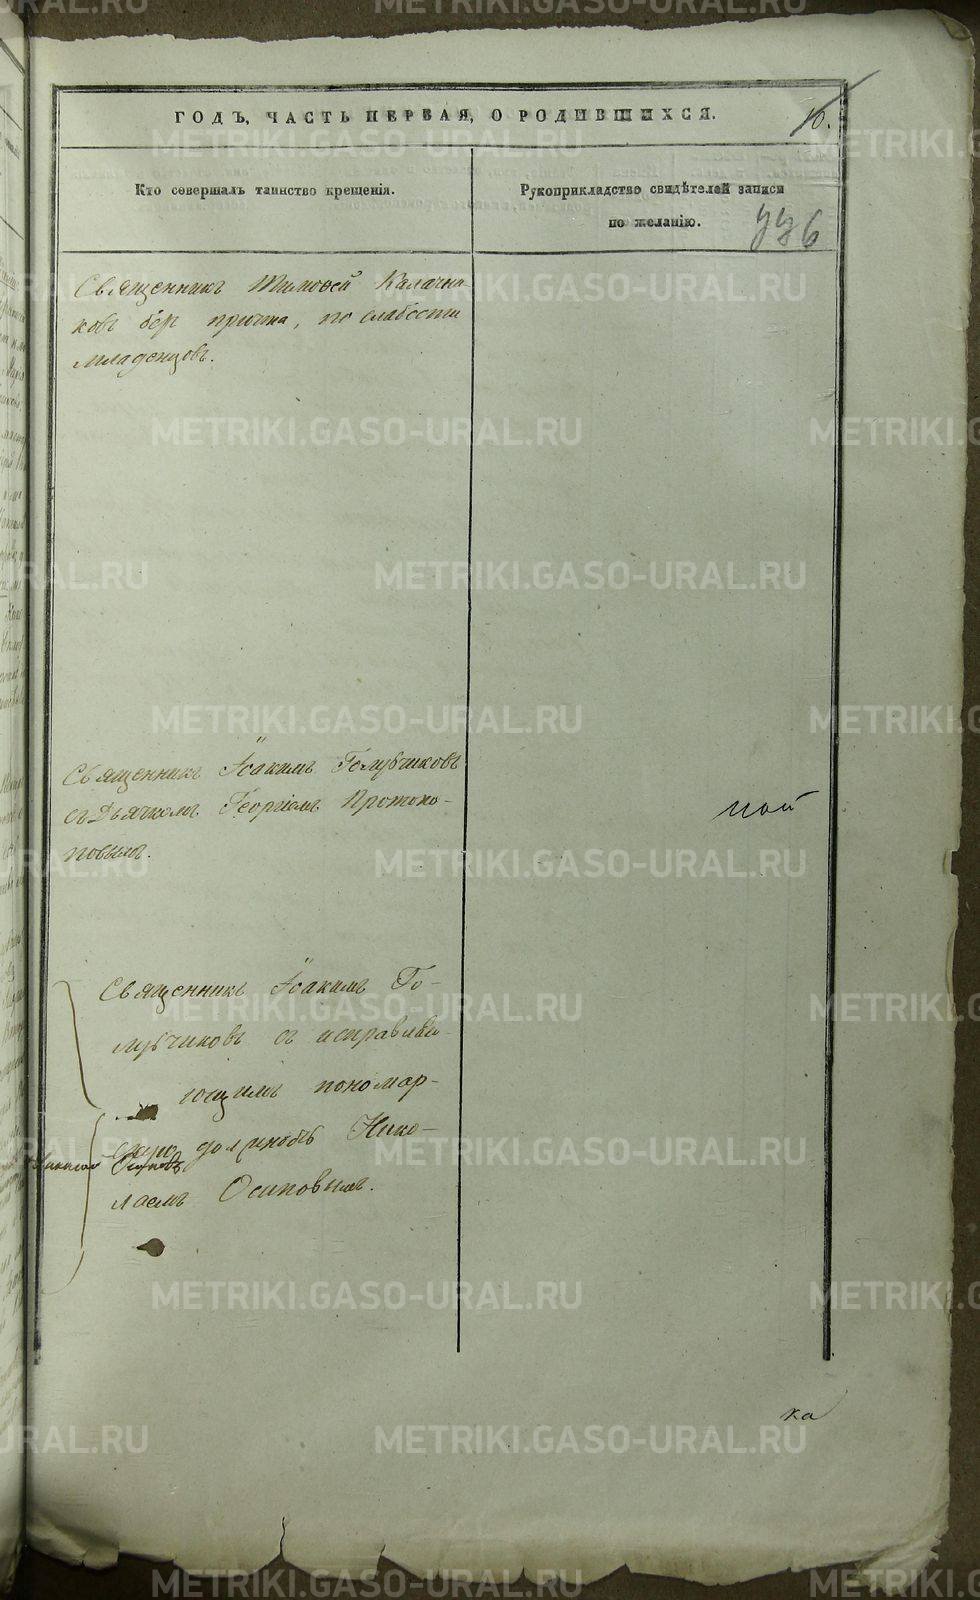 ГОДЪ, ЧАСТЬ ПЕРВАЯ, О РОДИВШИХСЯ.
10.
Кто совершалъ таинство крещенія.
Рукоприкладство свидѣтелей записи
по желанію.
Священникъ Тимоѳей Калачни
ковъ безъ причта, по слабости
младенцовъ.
Священникъ Іоакимъ Голубчиковъ
съ Дьячкомъ Георгіемъ Протопо-
повымъ.
ной
Священникъ Іоакимъ Го-
лубчиковъ съ исправля
ющимъ пономар-
скую должность Нико-
лаемъ Осиповымъ.
ка
METRIKI.GASO-URAL.RU